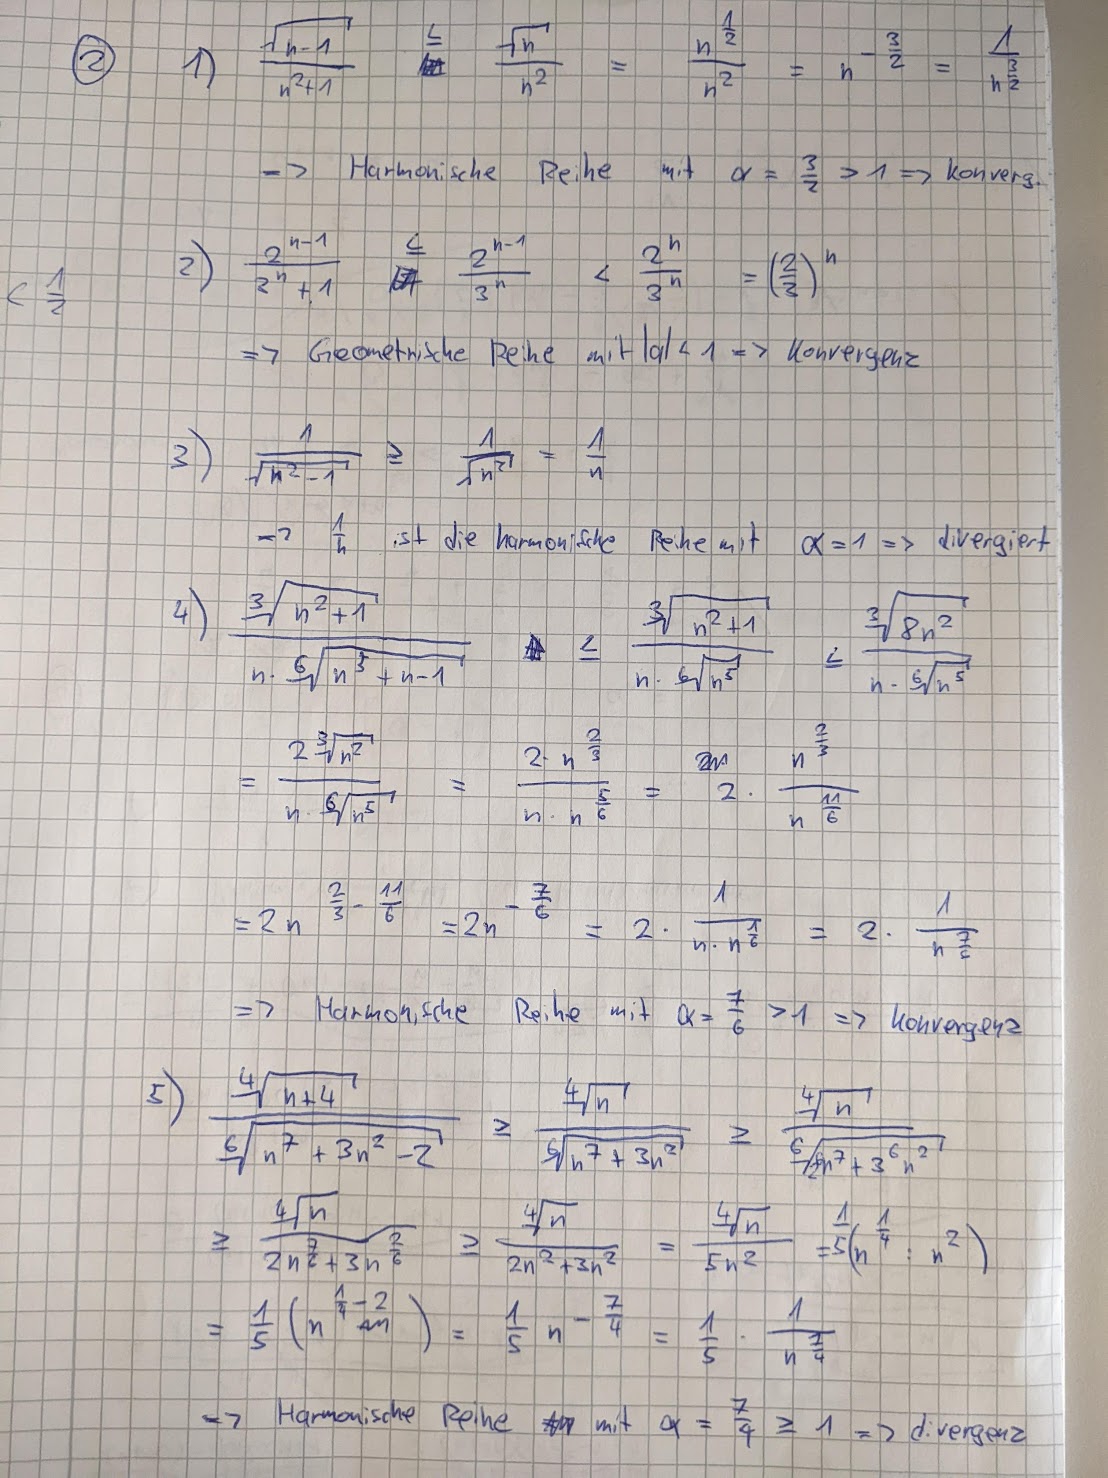 ② 1) √(n-1) / (n²+1) ≤ √n / n² = n^(1/2) / n² = n^(-3/2) = 1 / n^(3/2)
-> Harmonische Reihe mit α = 3/2 > 1 => Konverg.
2) 2^(n-1) / (3^n + 1) ≤ 2^(n-1) / 3^n < 2^n / 3^n = (2/3)^n
< 1/2
=> Geometrische Reihe mit |q| < 1 => Konvergenz
3) 1 / √(n²-1) ≥ 1 / √(n²) = 1/n
-> 1/n ist die harmonische Reihe mit α = 1 => divergiert
4) ³√(n²+1) / (n · ⁶√(n⁵+n-1)) ≤ ³√(n²+1) / (n · ⁶√(n⁵)) ≤ ³√(8n²) / (n · ⁶√(n⁵))
= 2 ³√(n²) / (n · ⁶√(n⁵)) = 2 · n^(2/3) / (n · n^(5/6)) = 2 · n^(2/3) / n^(11/6)
= 2n^(2/3 - 11/6) = 2n^(-7/6) = 2 · 1 / (n · n^(1/6)) = 2 · 1 / n^(7/6)
=> Harmonische Reihe mit α = 7/6 > 1 => Konvergenz
5) ⁴√(n+4) / ⁶√(n⁷ + 3n² - 2) ≥ ⁴√n / ⁶√(n⁷ + 3n²) ≥ ⁴√n / ⁶√(2⁶n⁷ + 3⁶n²)
≥ ⁴√n / (2n^(7/6) + 3n^(2/6)) ≥ ⁴√n / (2n² + 3n²) = ⁴√n / 5n² = 1/5 (n^(1/4) : n²)
= 1/5 (n^(1/4 - 2)) = 1/5 n^(-7/4) = 1/5 · 1 / n^(7/4)
-> Harmonische Reihe mit α = 7/4 ≥ 1 => divergenz